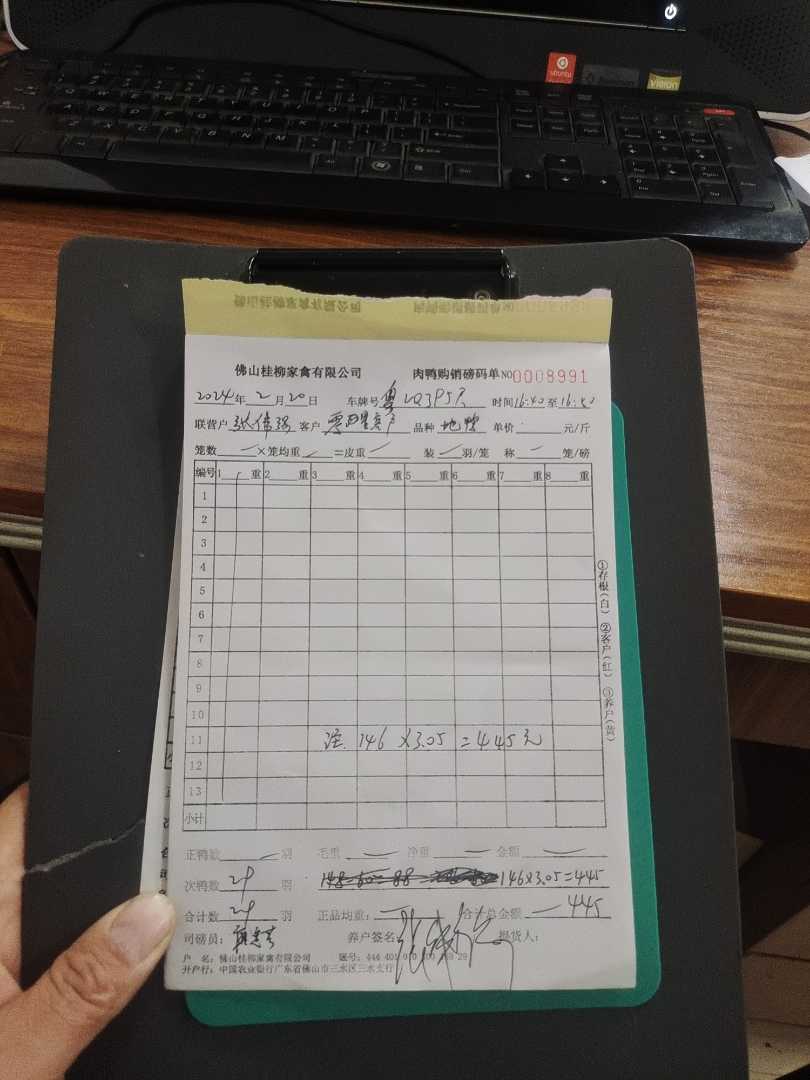 ubuntu
佛山桂柳家禽有限公司 肉鸭购销磅码单 NO 0008991
2024年2月20日 车牌号 粤 时间16:40至16:50
联营户 张伟强 客户 品种 地鸭 单价 元/斤
笼数 ×笼均重 =皮重 装 羽/笼 称 笼/磅
编号 1 重 2 重 3 重 4 重 5 重 6 重 7 重 8 重
1
2
3
4
5
6
7
8
9
10
11
注. 146 ×3.05 =445元
12
13
小计
①存根(白) ②客户(红) ③养户(黄)
正鸭数 羽 毛重 净重 金额
次鸭数 29 羽 146×3.05=445
合计数 29 羽 正品均重: 合计总金额 445
司磅员: 养户签名 提货人:
户 名: 佛山桂柳家禽有限公司 账号:
开户行: 中国农业银行广东省佛山市三水区三水支行